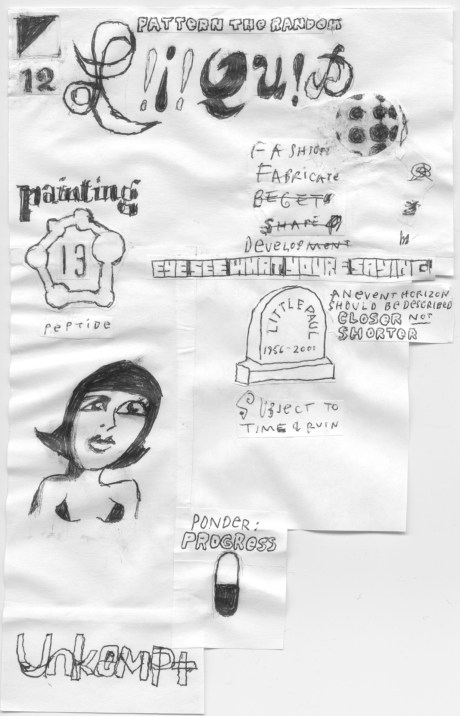 PATTERN THE RANDOM
12
L!¡!QU!D
FASHION
FABRICATE
BEGET
SHAPE
DEVELOPMENT
painting
13
PEPTIDE
EYE SEE WHAT YOUR E SAYING
LITTLE PAUL
1956-2001
AN EVENT HORIZON
SHOULD BE DESCRIBED
CLOSER NOT
SHORTER
SUBJECT TO
TIME & RUIN
PONDER:
PROGRESS
UnkeMPt